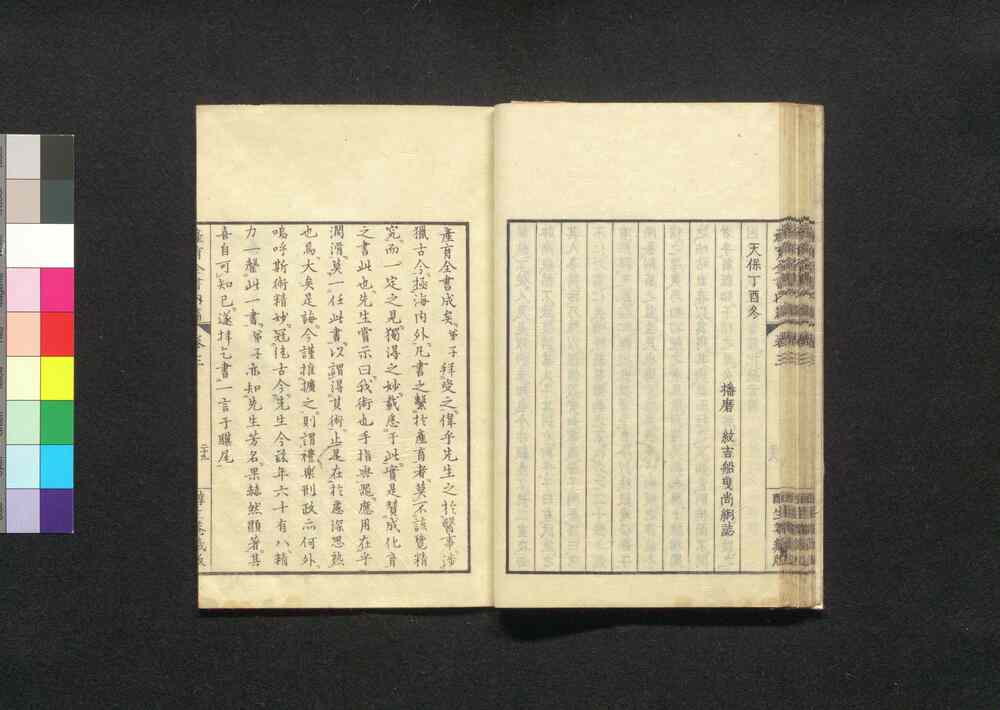 天保丁酉冬
播磨 紋吉船曳尚絅誌
産育全書成矣弟子拜受之偉乎先生之於醫事渉
獵古今極海内外凡書之繫於産育者莫不該覽精
究而一定之見獨得之妙載悉于此實是贊成化育
之書此也先生嘗示曰我術也手指與器應用在乎
潤滑莫一任此書以謂得其術止是在於慮深思熟
也爲大矣是誨今謹推擴之則謂禮樂刑政亦何外
嗚呼斯術精妙冠於古今先生今茲年六十有八精
力一罄此一書弟子亦知先生芳名果赫然顯著其
喜自可知已遂拜乞書一言于驥尾
産育全書
卷三
二十九